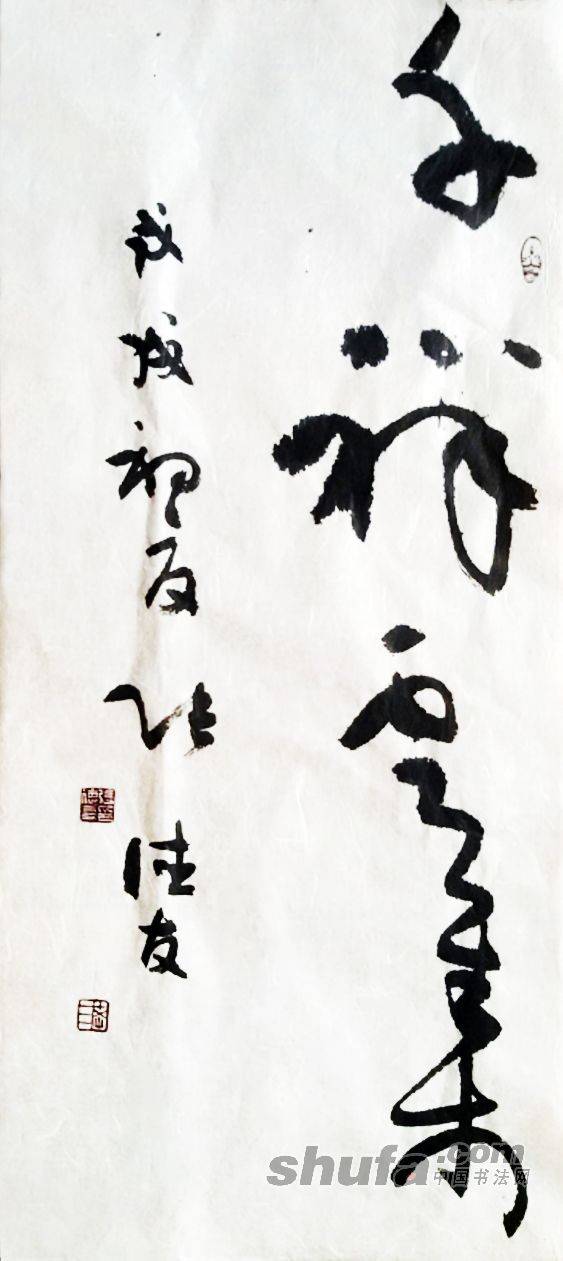 千祥雲集
戊戌初夏 張德友
shufa.com
中国书法网